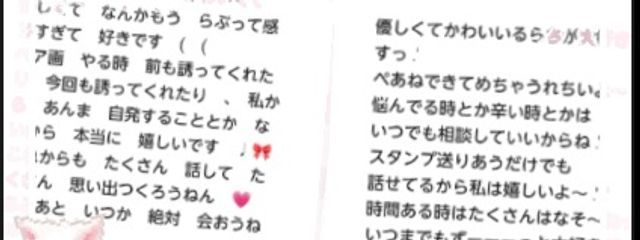 して なんかもう らぶって感
すぎて 好きです ( (
ア画 やる時 前も誘ってくれた
今回も誘ってくれたり 、 私か
あんま 自発することとか な
から 本当に 嬉しいです ♩🎀
からも たくさん 話して た
ん 思い出つくろうねん 💗
あと いつか 絶対 会おうね
優しくてかわいいるら
すっ!
ぺあねできてめちゃうれちいよ
悩んでる時とか辛い時とかは
いつでも相談していいからね!
スタンプ送りあうだけでも
話せてるから私は嬉しいよ〜!
時間ある時はたくさんはなそ〜
いつまでもずーーーっと大好き